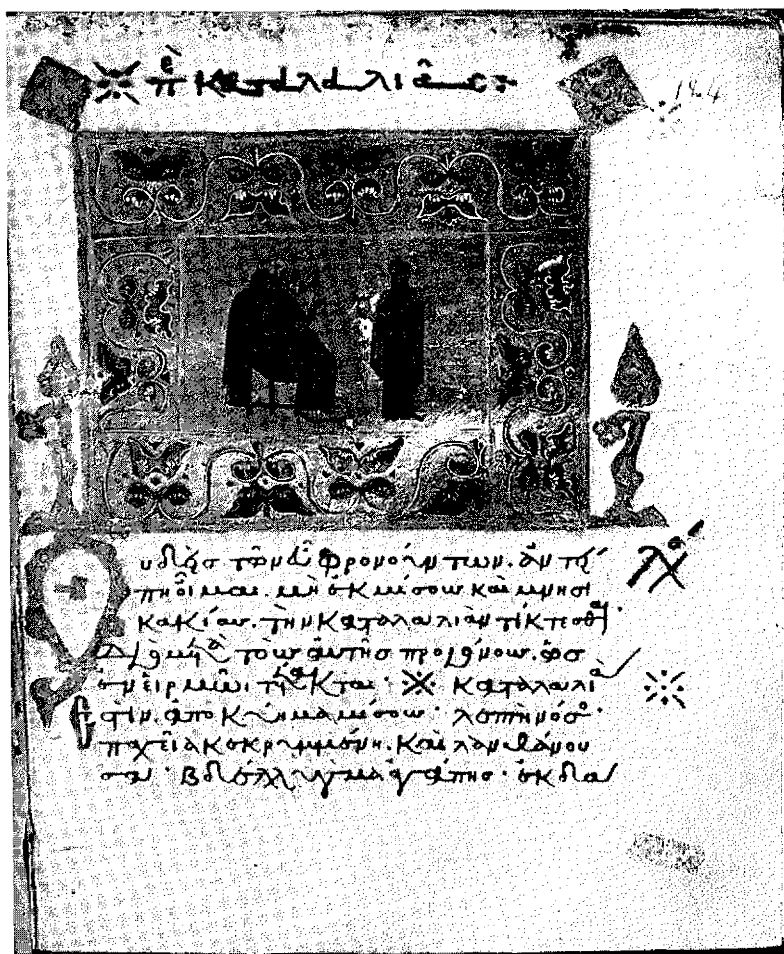 πε καταλαλιᾶς
104
Οὐδεὶς τῶν εὖ φρονούντων. ἀντεί
πῃ οἶμαι. μὴ ἐκ μίσους καὶ μνησι
κακίας. τὴν καταλαλιὰν τίκτεσθαι·
Διὸ μετὰ τοὺς αὐτῆς προγόνους. ὡς
ἐν εἱρμῶι τέτακται· καταλαλιά
ἐστιν. ἀποκύημα μίσους· λεπτὴ νόσος·
παχεῖα κεκρυμμένη. καὶ λανθάνου
σα· ἀγάπης· ἐκδα